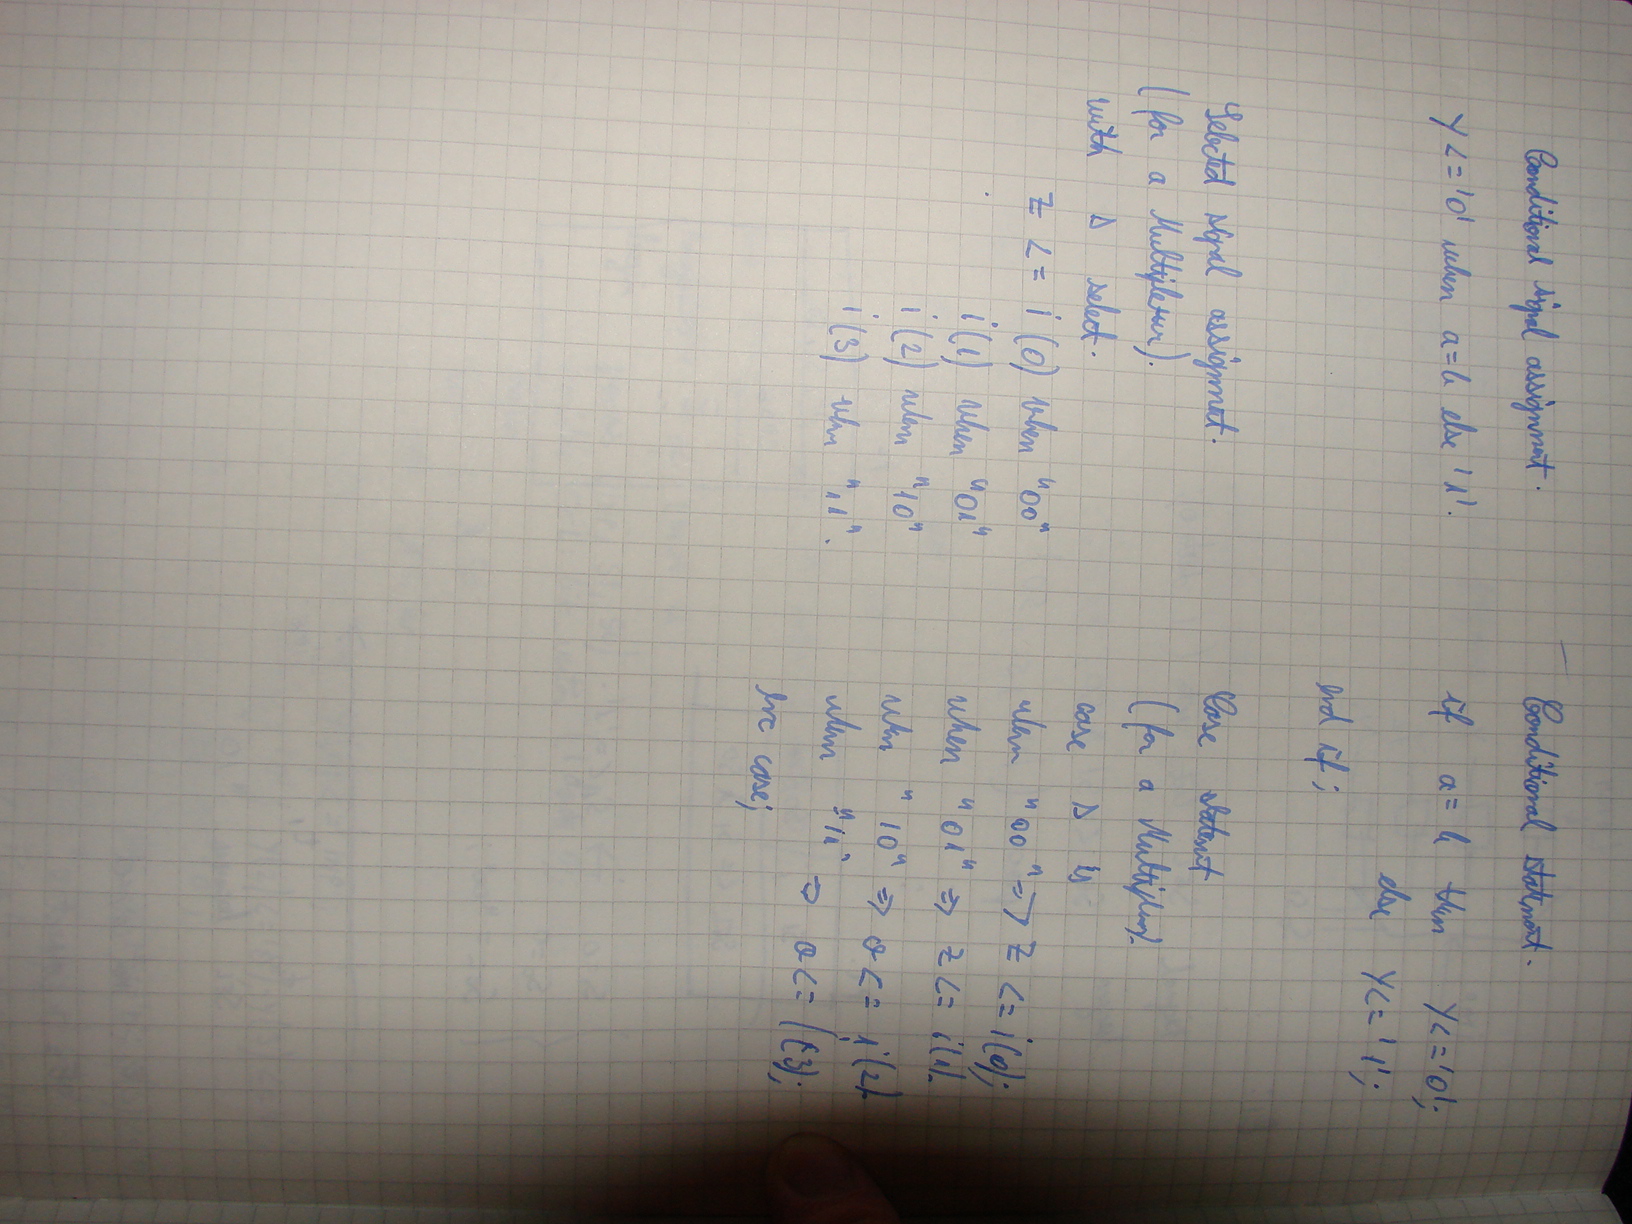 Conditional signal assignment.
Y <= '0' when a=b else '1'.
Selected signal assignmet.
(for a Multiplexer).
with s select.
Z <= i(0) when "00"
i(1) when "01"
i(2) when "10"
i(3) when "11".
Conditional statment.
if a=b then Y<='0';
else Y<='1';
end if;
Case statemt
(for a Multiplexer).
case s is
when "00" => Z <= i(0);
when "01" => Z <= i(1).
when "10" => o <= i(2).
when "11" => o <= i(3);
case;